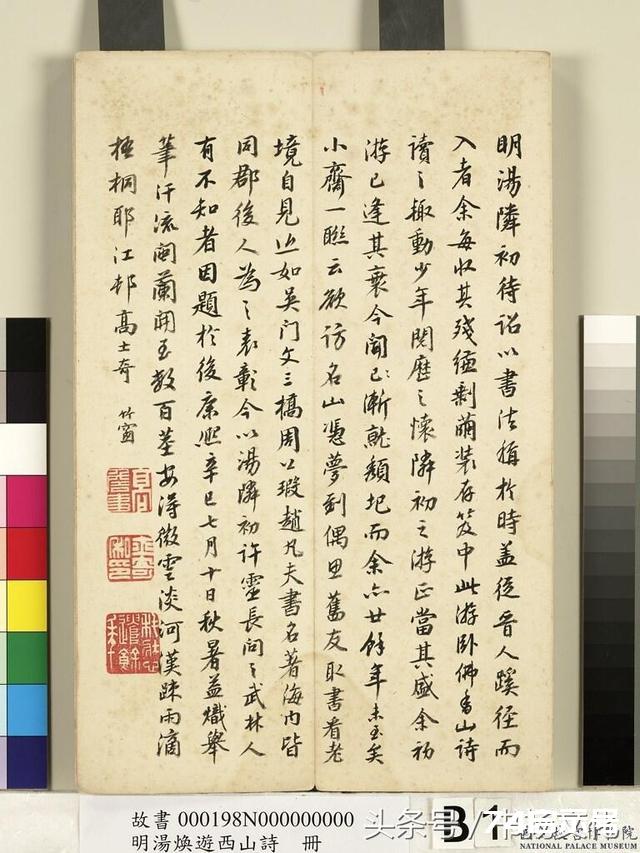 明湯隣初待詔以書法稱於時蓋從晉人蹊徑而
入者余每收其殘縑剩繭装存笈中此游卧佛香山詩
讀之輒動少年閱歷之懷隣初之游正當其盛余初
游已逢其衰今聞已漸就頹圮而余亦廿餘年未至矣
小齋一聯云欲訪名山憑夢到偶思舊友取書看老
境自見近如吳門文三橋周公瑕趙凡夫書名著海内皆
同郡後人為之表彰今以湯隣初許靈長問之武林人
有不知者因題於後康熙辛巳七月十日秋暑益熾舉
筆汗流閩蘭開至數百莖安得微雲淡河漢疎雨滴
梧桐耶江邨高士奇 竹窗
故書 000198N000000000
明湯煥遊西山詩 冊
B 1
头条号/
NATIONAL PALACE MUSEUM